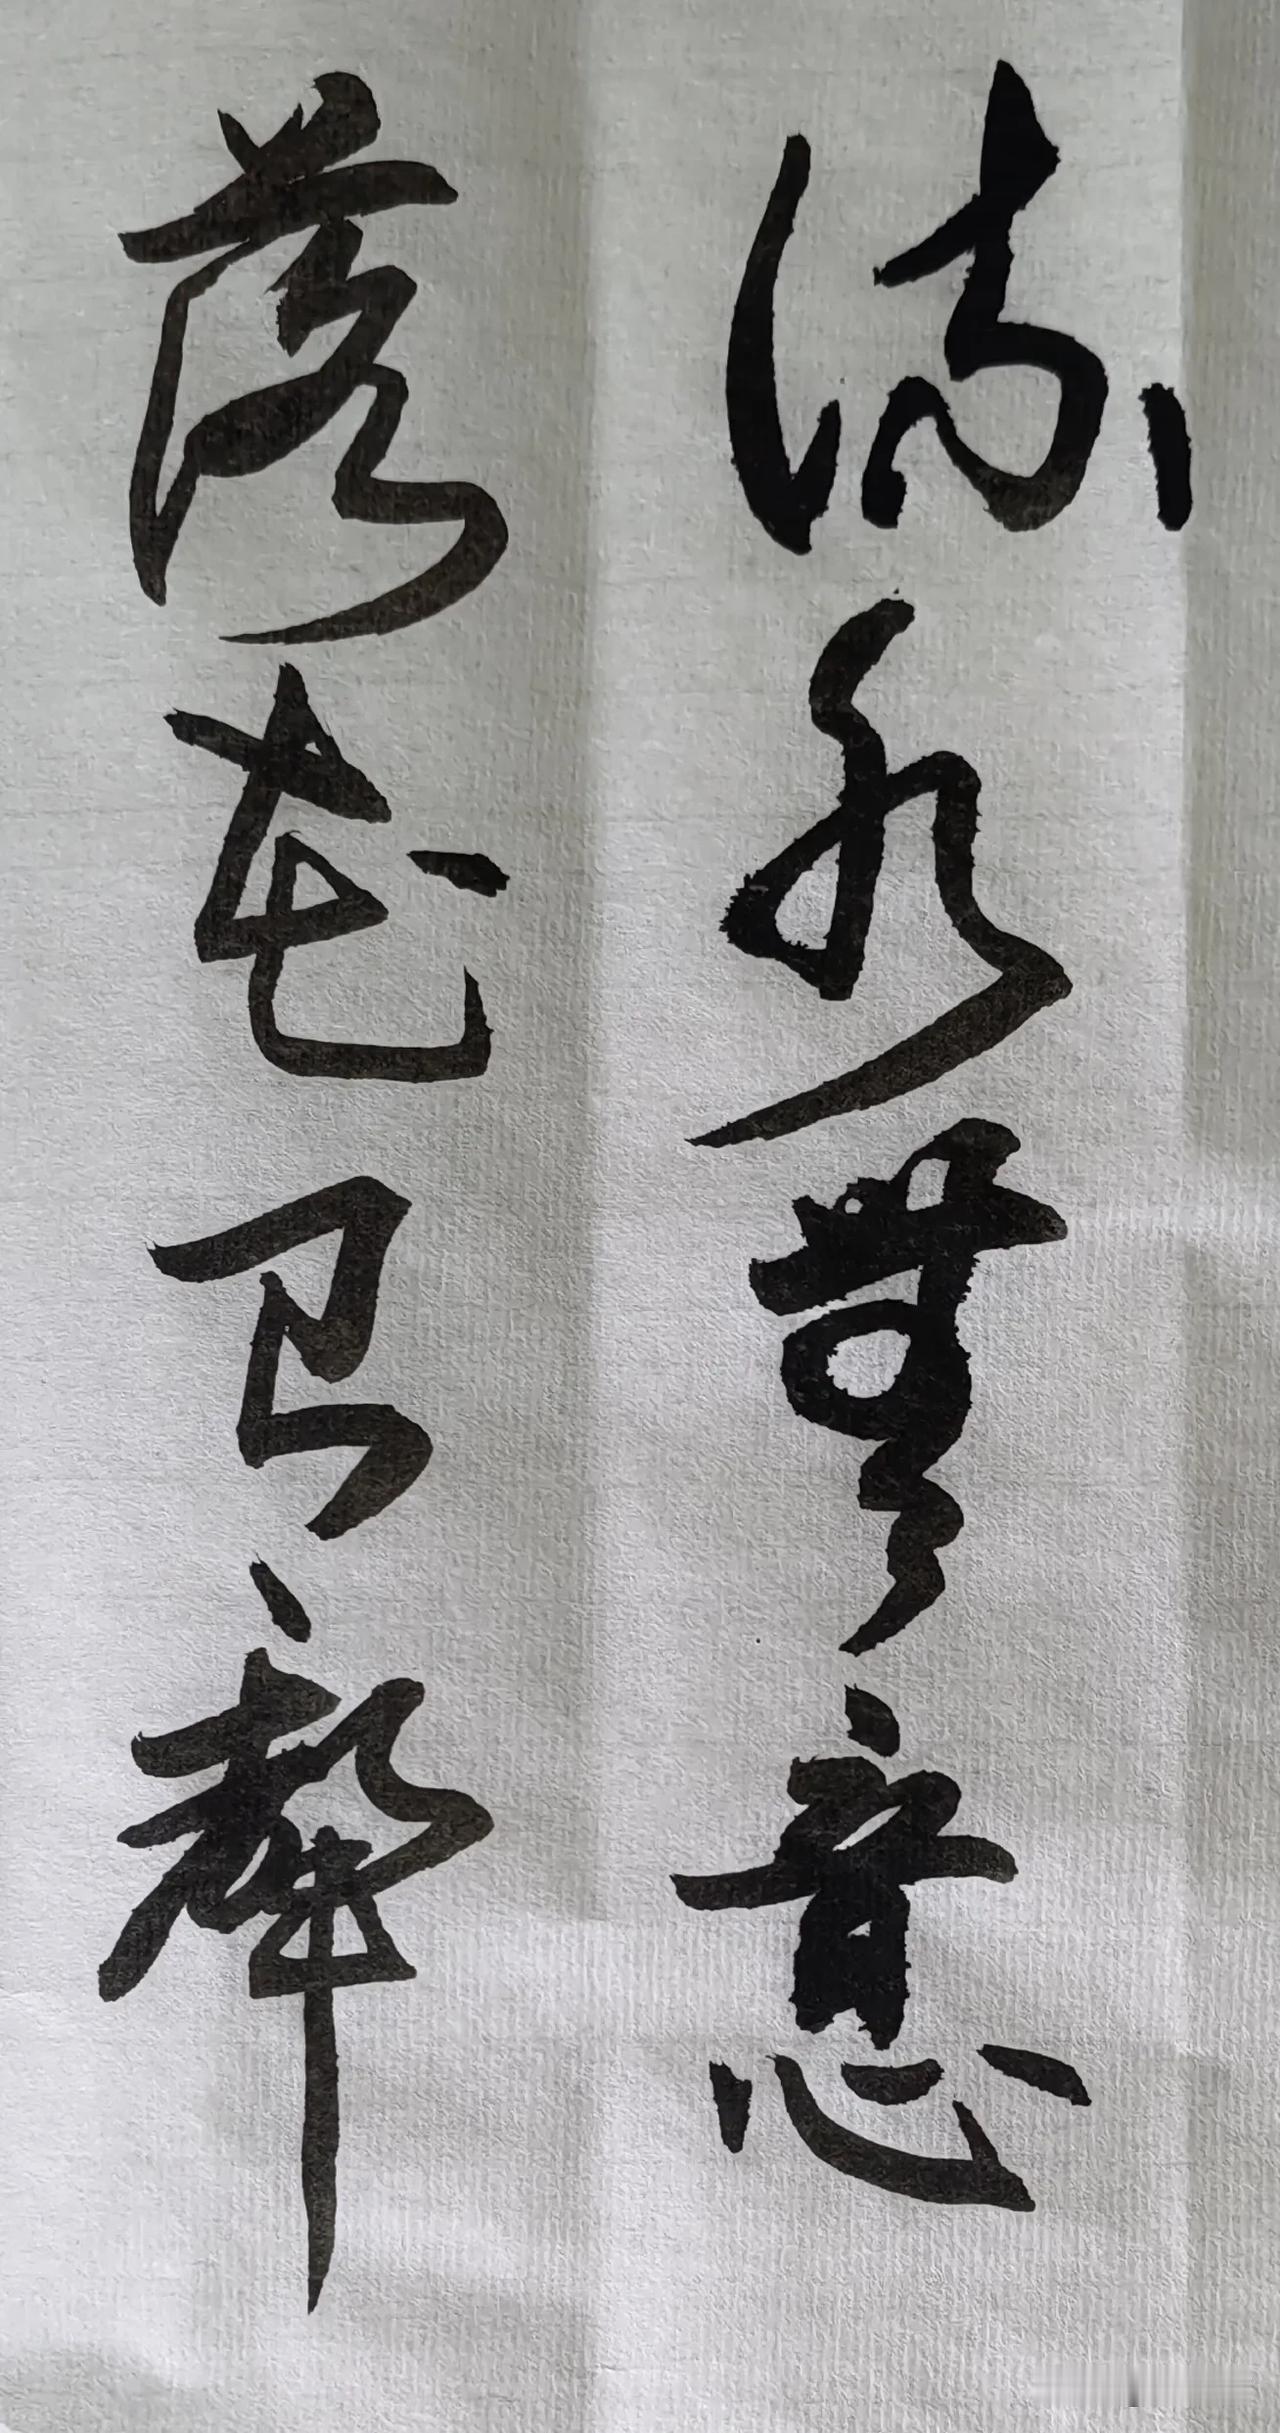 流水無意
落花有聲